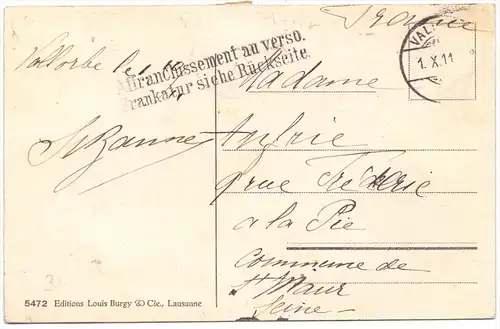 France
Vallorbe le
Affranchissement au verso.
Frankatur siehe Rückseite.
VAL
1.X.11
Madame
Suzanne
rue Frédéric
à la Pie
Commune de
St Maur
Seine
5472 Editions Louis Burgy & Cie., Lausanne